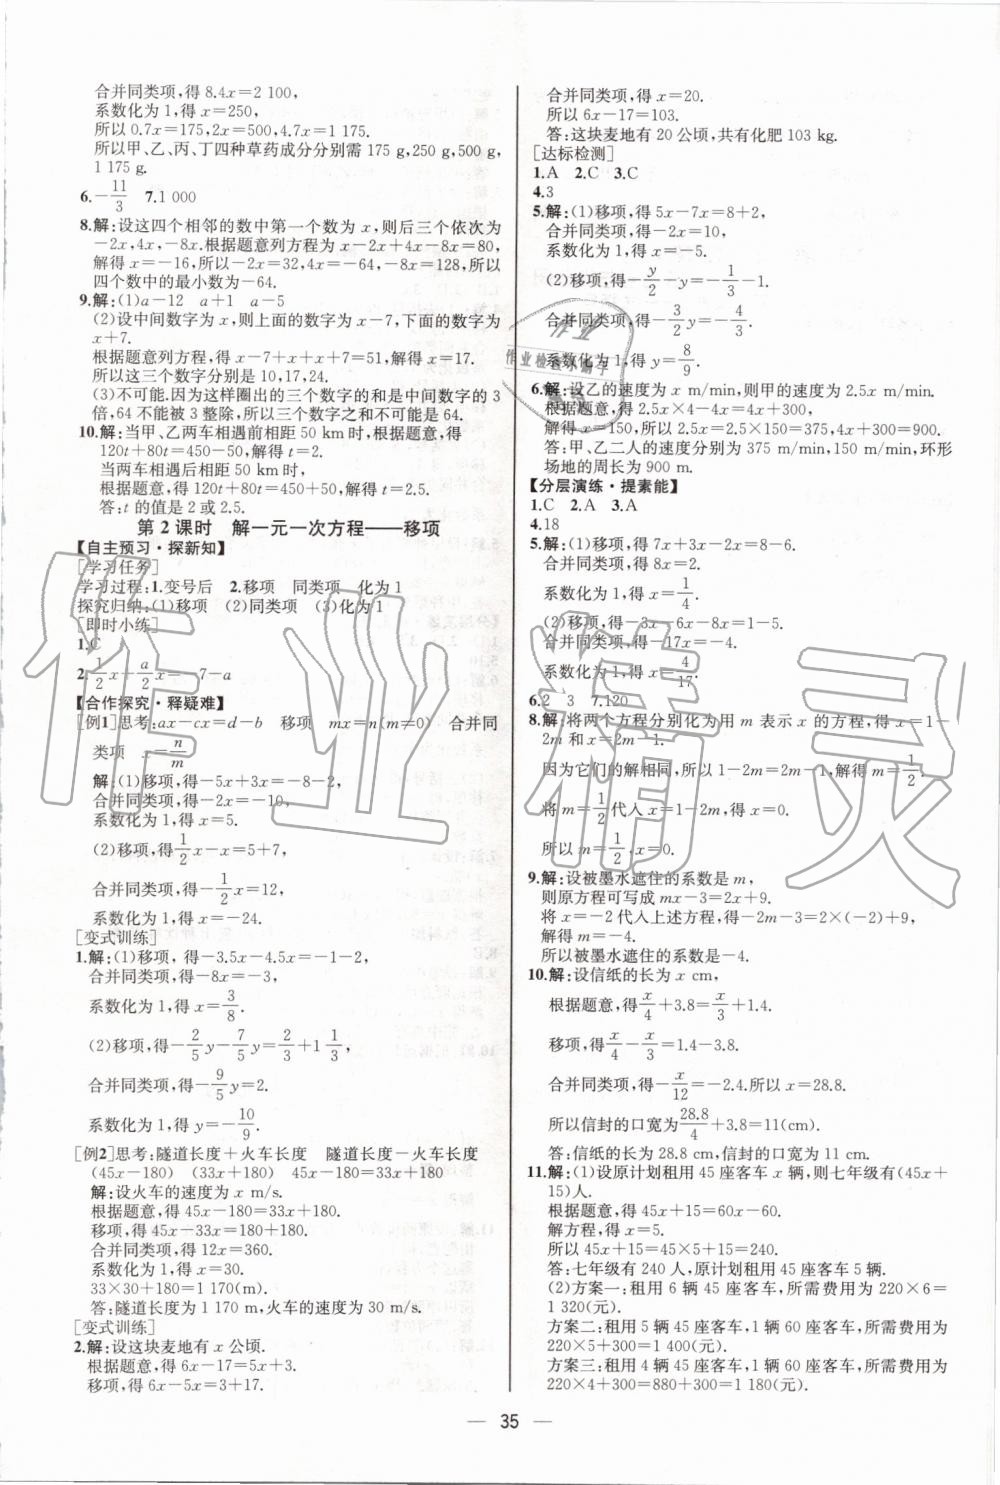 合并同类项,得 8.4x=2 100,
系数化为 1,得 x=250,
所以 0.7x=175,2x=500,4.7x=1 175.
所以甲、乙、丙、丁四种草药成分分别需 175 g,250 g,500 g,
1 175 g.
6.-11/3 7.1 000
8.解:设这四个相邻的数中第一个数为 x,则后三个依次为
-2x,4x,-8x.根据题意列方程为 x-2x+4x-8x=80,
解得 x=-16,所以-2x=32,4x=-64,-8x=128,所以
四个数中的最小数为-64.
9.解:(1)a-12 a+1 a-5
(2)设中间数字为 x,则上面的数字为 x-7,下面的数字为
x+7.
根据题意列方程,得 x-7+x+x+7=51,解得 x=17.
所以这三个数字分别是 10,17,24.
(3)不可能.因为这样圈出的三个数字的和是中间数字的 3
倍,64 不能被 3 整除,所以三个数字之和不可能是 64.
10.解:当甲、乙两车相遇前相距 50 km时,根据题意,得
120t+80t=450-50,解得 t=2.
当两车相遇后相距 50 km时,
根据题意,得 120t+80t=450+50,解得 t=2.5.
答:t 的值是 2 或 2.5.
第 2 课时 解一元一次方程——移项
【自主预习·探新知】
[学习任务]
学习过程:1.变号后 2.移项 同类项 化为 1
探究归纳:(1)移项 (2)同类项 (3)化为 1
[即时小练]
1.C
2.1/2x+a/2x=-7-a
【合作探究·释疑难】
[例1]思考:ax-cx=d-b 移项 mx=n(m≠0) 合并同
类项 x=n/m
解:(1)移项,得-5x+3x=-8-2,
合并同类项,得-2x=-10,
系数化为 1,得 x=5.
(2)移项,得1/2x-x=5+7,
合并同类项,得-1/2x=12,
系数化为 1,得 x=-24.
[变式训练]
1.解:(1)移项,得-3.5x-4.5x=-1-2,
合并同类项,得-8x=-3,
系数化为 1,得 x=3/8.
(2)移项,得-2/5y-7/5y=2/3+1 1/3,
合并同类项,得-9/5y=2.
系数化为 1,得 y=-10/9.
[例2]思考:隧道长度+火车长度 隧道长度-火车长度
(45x-180) (33x+180) 45x-180=33x+180
解:设火车的速度为 x m/s.
根据题意,得 45x-180=33x+180,
移项,得 45x-33x=180+180.
合并同类项,得 12x=360.
系数化为 1,得 x=30.
33×30+180=1 170(m)
答:隧道长度为 1 170 m,火车的速度为 30 m/s.
[变式训练]
2.解:设这块麦地有 x 公顷.
根据题意,得 6x-17=5x+3.
移项,得 6x-5x=3+17.
合并同类项,得 x=20.
所以 6x-17=103.
答:这块麦地有 20 公顷,共有化肥 103 kg.
[达标检测]
1.A 2.C 3.C
4.3
5.解:(1)移项,得 5x-7x=8+2,
合并同类项,得-2x=10,
系数化为 1,得 x=-5.
(2)移项,得-y/2-y=-1/3-1.
合并同类项,得-3/2y=-4/3.
系数化为 1,得 y=8/9.
6.解:设乙的速度为 x m/min,则甲的速度为 2.5x m/min.
根据题意,得 2.5x×4-4x=4x+300,
解得 x=150,所以 2.5x=2.5×150=375,4x+300=900.
答:甲、乙二人的速度分别为 375 m/min,150 m/min,环形
场地的周长为 900 m.
【分层演练·提素能】
1.C 2.A 3.A
4.18
5.解:(1)移项,得 7x+3x-2x=8-6.
合并同类项,得 8x=2.
系数化为 1,得 x=1/4.
(2)移项,得-3x-6x-8x=1-5.
合并同类项,得-17x=-4.
系数化为 1,得 x=4/17.
6.2 3 7.120
8.解:将两个方程分别化为用 m 表示 x 的方程,得 x=1-
2m 和 x=2m-1.
因为它们的解相同,所以 1-2m=2m-1,解得 m=1/2,
将 m=1/2代入 x=1-2m,得 x=0.
所以 m=1/2,x=0.
9.解:设被墨水遮住的系数是 m,
则原方程可写成 mx-3=2x+9.
将 x=-2 代入上述方程,得-2m-3=2×(-2)+9,
解得 m=-4.
所以被墨水遮住的系数是-4.
10.解:设信纸的长为 x cm,
根据题意,得x/4+3.8=x/3+1.4.
移项,得x/4-x/3=1.4-3.8.
合并同类项,得-x/12=-2.4.所以 x=28.8.
所以信封的口宽为28.8/4+3.8=11(cm).
答:信纸的长为 28.8 cm,信封的口宽为 11 cm.
11.解:(1)设原计划租用 45 座客车 x 辆,则七年级有(45x+
15)人.
根据题意,得 45x+15=60x-60.
解方程,得 x=5.
所以 45x+15=45×5+15=240.
答:七年级有 240 人,原计划租用 45 座客车 5 辆.
(2)方案一:租用 6 辆 45 座客车,所需费用为 220×6=
1 320(元).
方案二:租用 5 辆 45 座客车,1 辆 60 座客车,所需费用为
220×5+300=1 400(元).
方案三:租用 4 辆 45 座客车,1 辆 60 座客车,所需费用为
220×4+300=880+300=1 180(元).
— 35 —
作业精灵
作业
作业检查小帮手